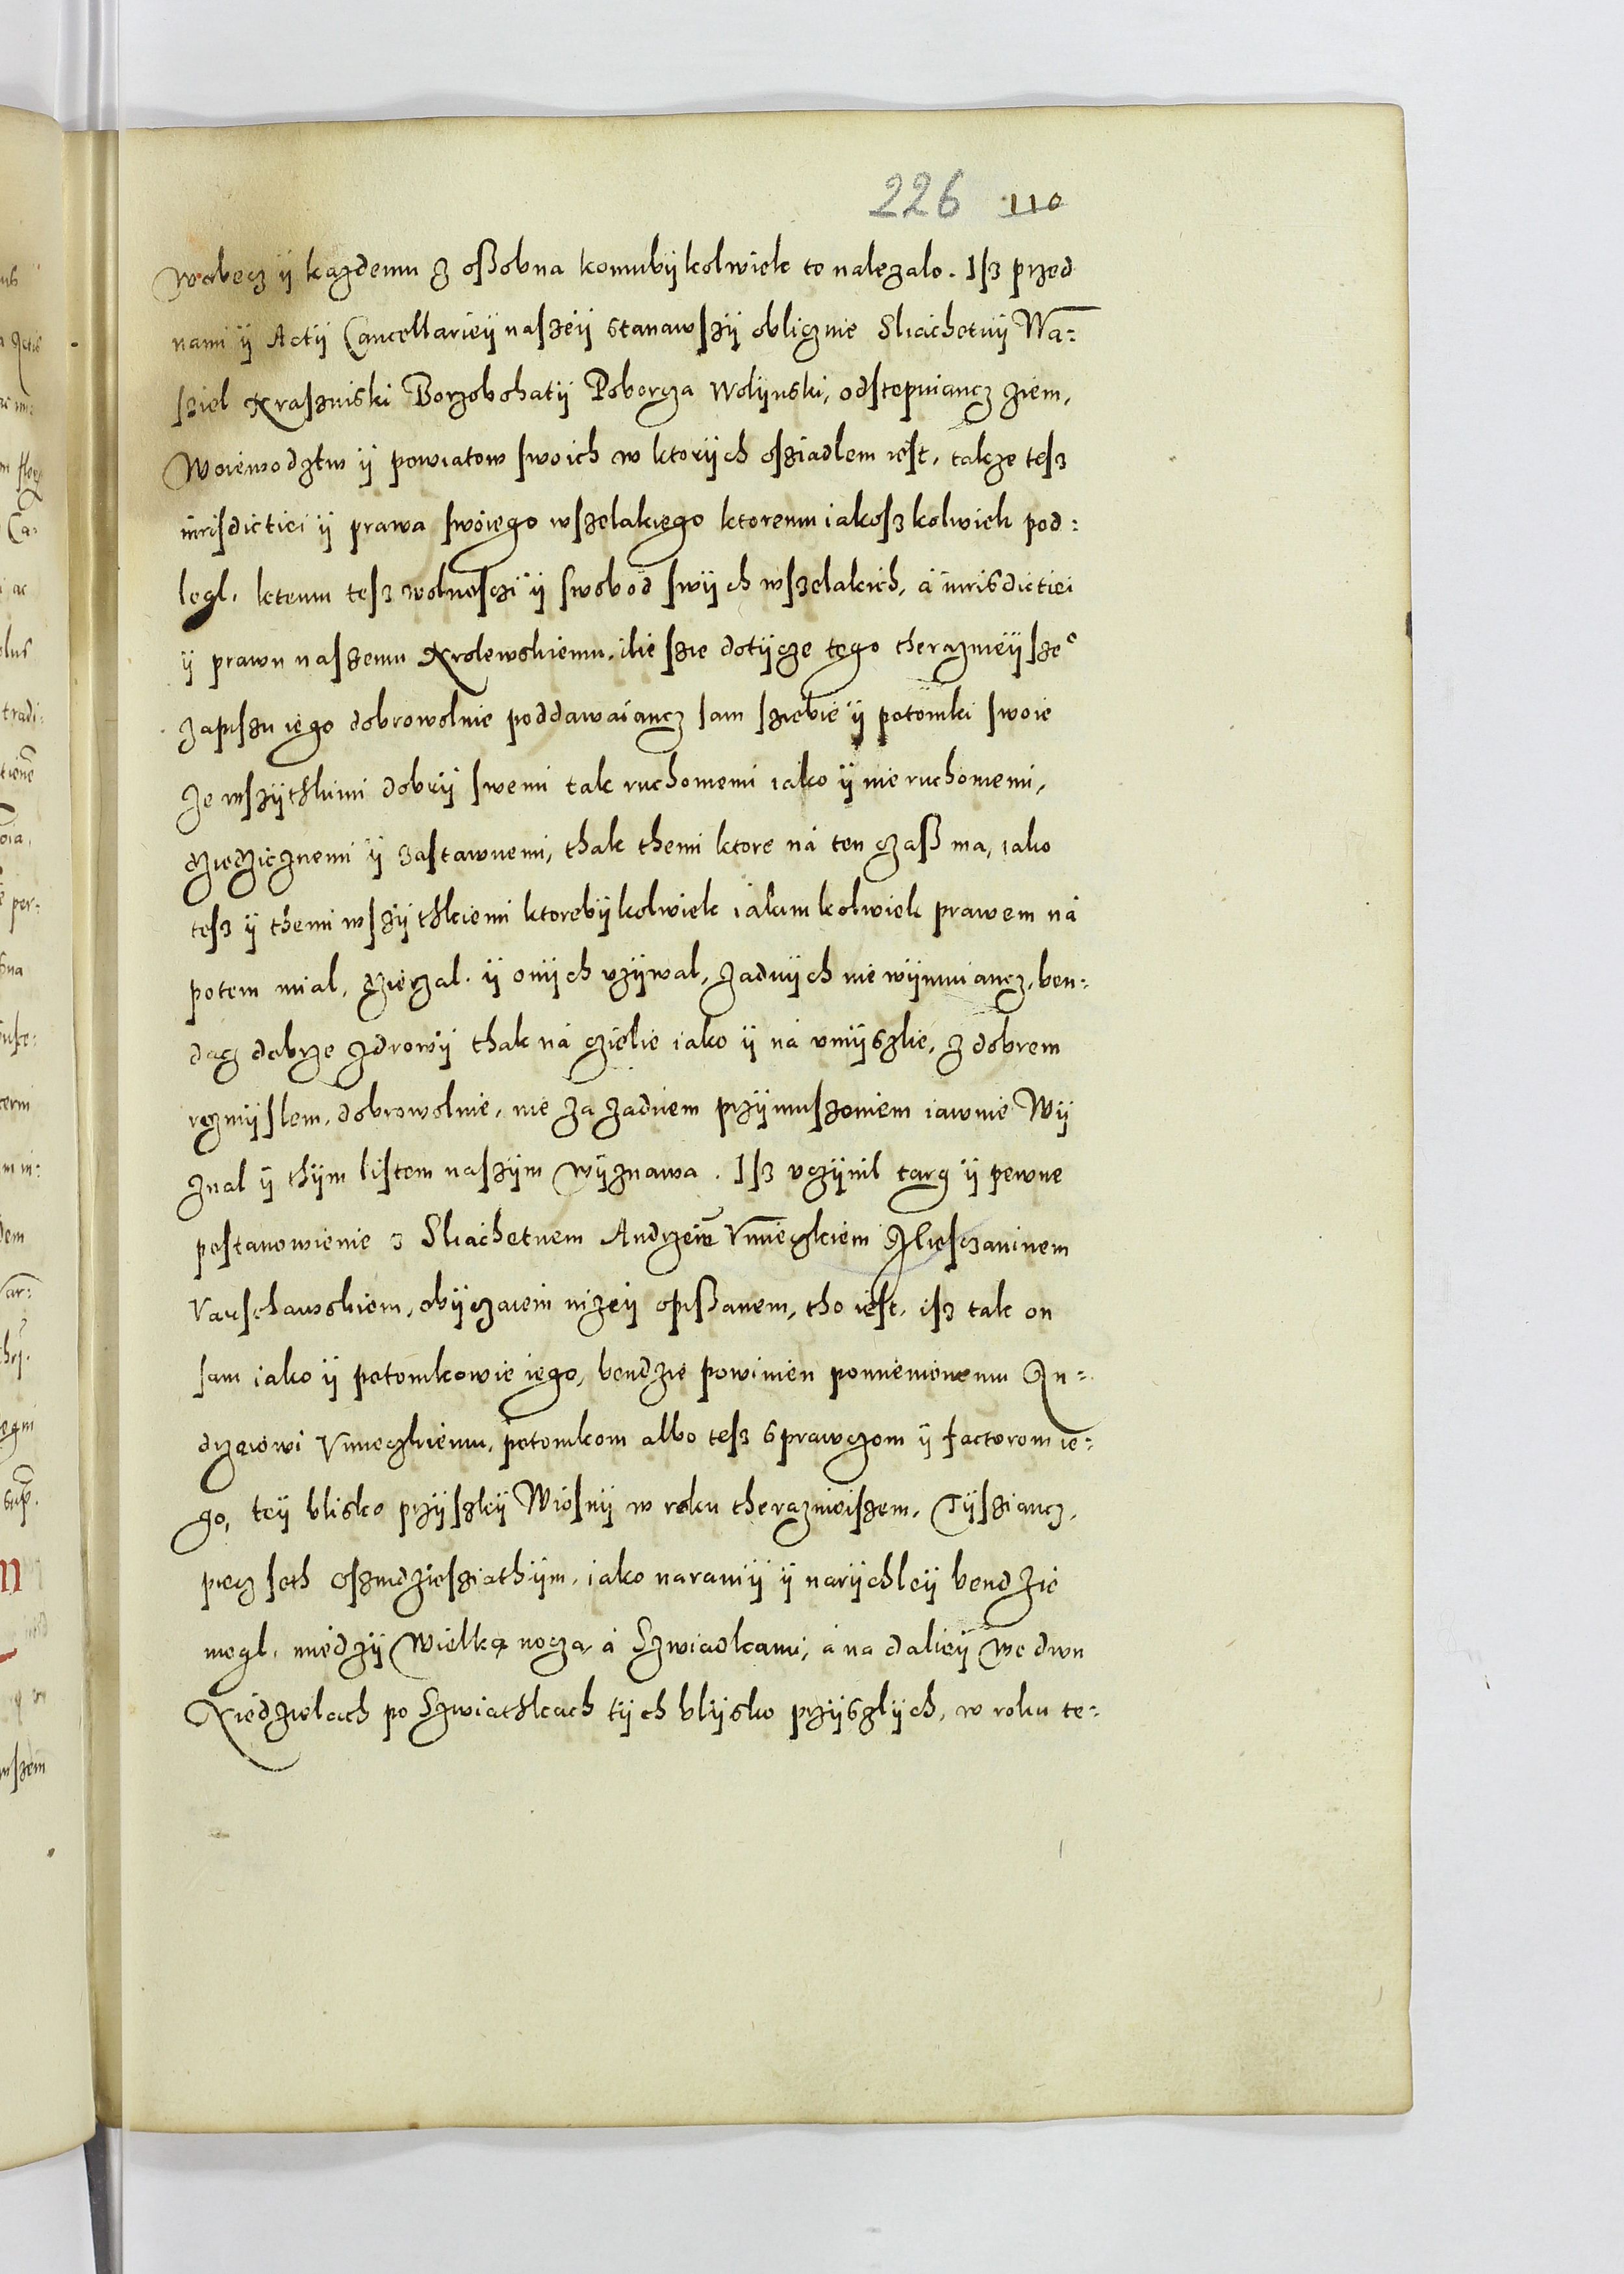 226 110
wobecz ÿ kazdemu z oßobna komubÿkolwiek to nalezalo. Isz przed
nami ÿ Actÿ Cancellarieÿ naszeÿ stanawszÿ oblicznie Sliachetnÿ Wa=
sziel Kraszniski Borzobohatÿ Poborcza Wolÿnski, odstepuiancz ziem,
Woiewodztw ÿ powiatow swoich w ktorÿch osziadlem iest, takze tesz
iurisdictiei ÿ prawa swoiego wszelakiego ktoremu iakosz kolwiek pod=
legl. ktemu tesz wolnosczi ÿ swobod swÿch wszelakich, á iurisdictiei
ÿ prawu naszemu Krolewskiemu, ilie szie dotÿcze tego therazneÿsze°
zapiszu iego dobrowolnie poddawaiancz sam sziebie ÿ potomki swoie
ze wszÿthkimi dobrÿ swemi tak ruchomemi iako ÿ nie ruchomemi,
dziedzicznemi ÿ zastawnemi, thak themi ktore ná ten czaß ma, iako
tesz ÿ themi wszÿthkiemi ktorebÿkolwiek iakim kolwiek prawem ná
potem mial, dzierzal. ÿ onÿch vzÿwal, zadnÿch nie wÿmuiancz, ben=
dacz dobrze zdrowÿ thak ná czielie iako ÿ ná vmÿszlie, z dobrem
rozmÿslem, dobrowolnie, nie za zadnem przÿmuszeniem iawnie Wÿ
znal ÿ thÿm listem naszÿm wÿznawa. Isz vczÿnil targ ÿ pewne
postanowienie z Sliachetnem Andrzeiem Vnieczkiem
Varschawskiem, obÿczaiem nizeÿ opißanem, tho iest, isz tak on
sam iako ÿ potomkowie iego, bendzie powinien pomienionemu An=
drzeiowi Vnieczkiemu, potomkom albo tesz sprawczom ÿ factorom ie=
go, teÿ blisko przÿszleÿ Wiosnÿ w roku therazniejszem, Tÿsziancz,
piecz seth oszmdziesziathÿm, iako naraniÿ ÿ narÿchleÿ bendzie
mogl, miedzÿ Wielka nocza, á Szwiadkami, á na dalieÿ we dwu
Niedzielach po Szwiathkach tÿch blÿsko przÿszlÿch, w roku te=